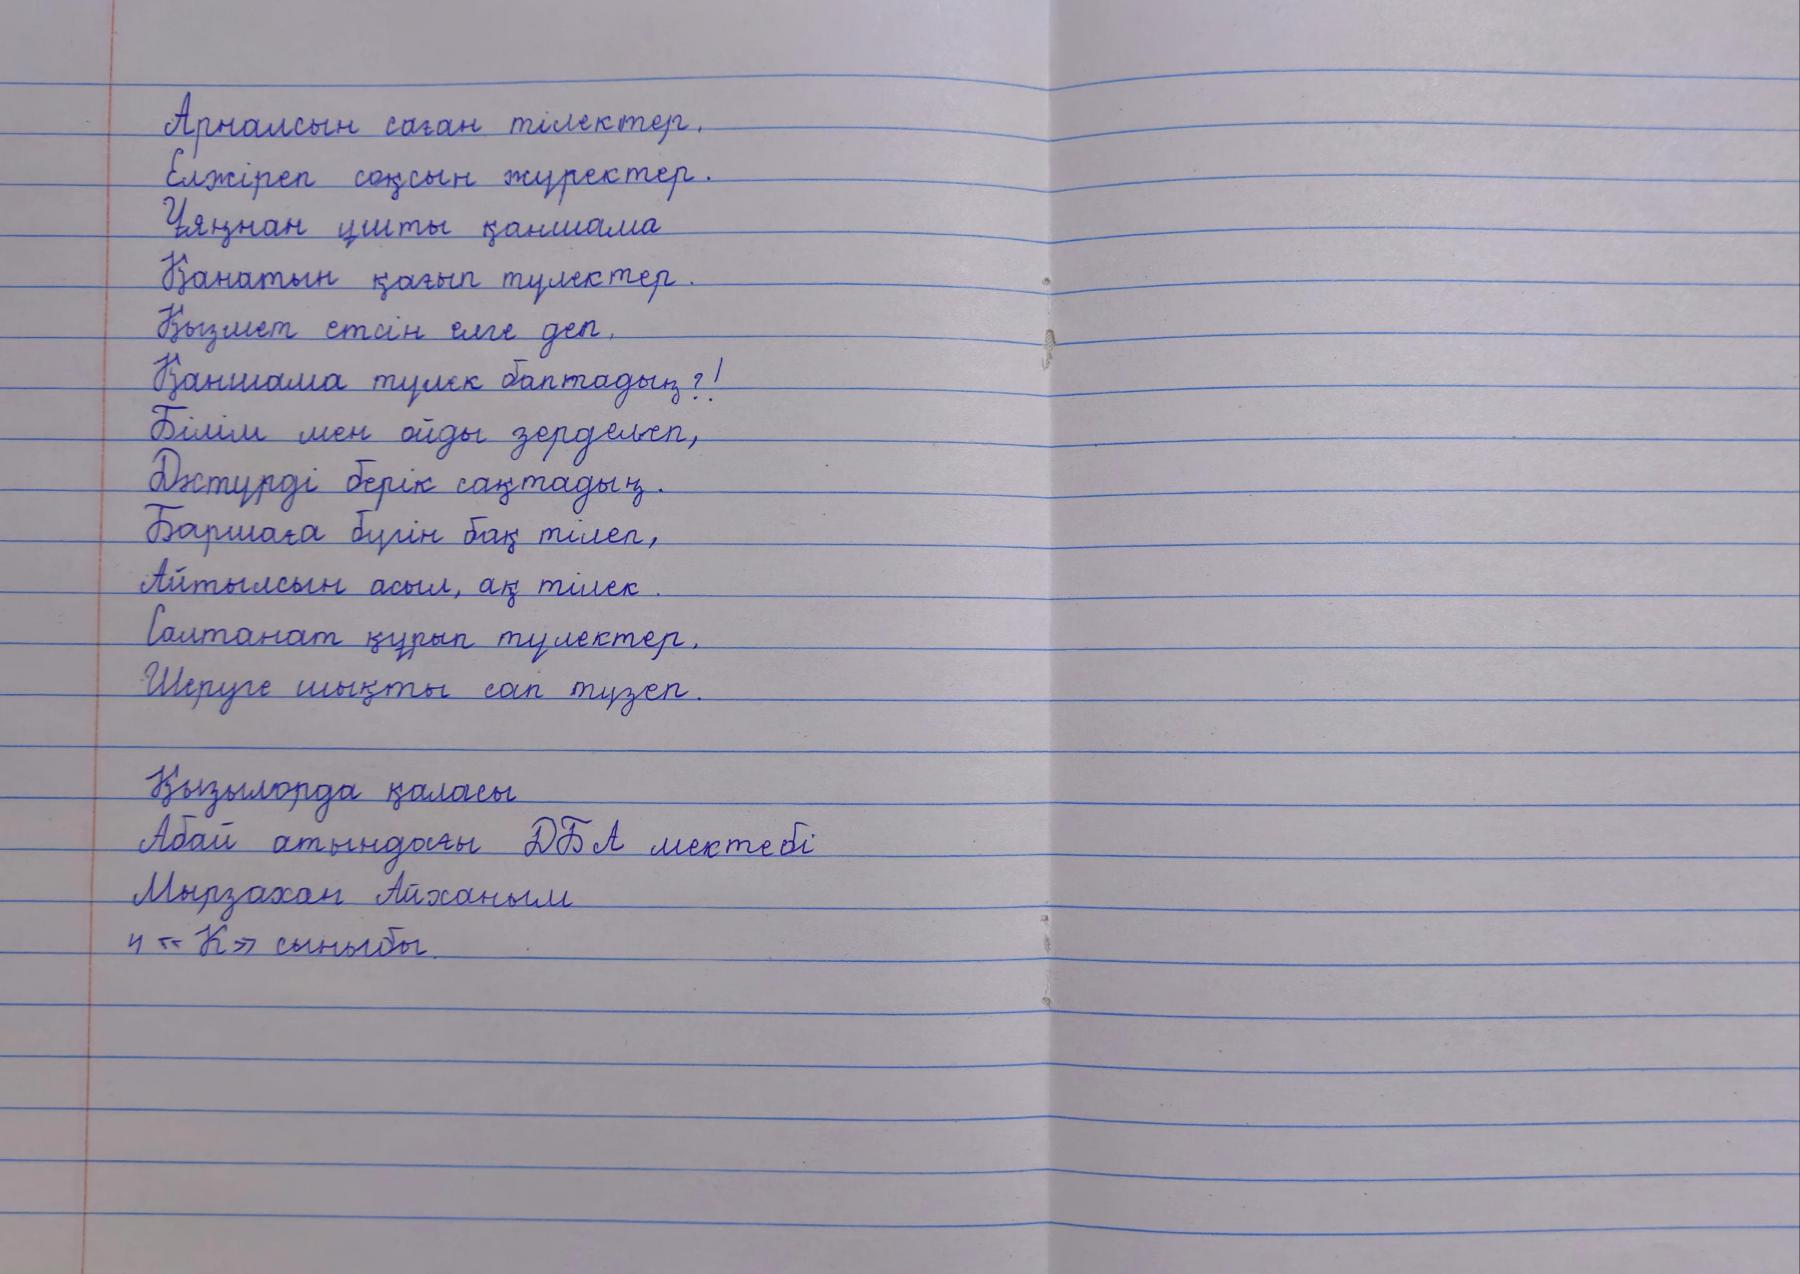 Арналсын саған тілектер.
Елжіреп соқсын жүректер.
Ұяңнан ұшты қаншама
Қанатын қағып түлектер.
Қызмет етсін елге деп.
Қаншама түлек баптадың?!
Білім мен ойды зерделеп,
Дәстүрді берік сақтадың.
Баршаға бүгін бақ тілеп,
Айтылсын асыл, ақ тілек.
Салтанат құрып түлектер.
Шеруге шықты сап түзеп.
Қызылорда қаласы
Абай атындағы ДБА мектебі
Мырзахан Айханым
4 "К" сыныбы.